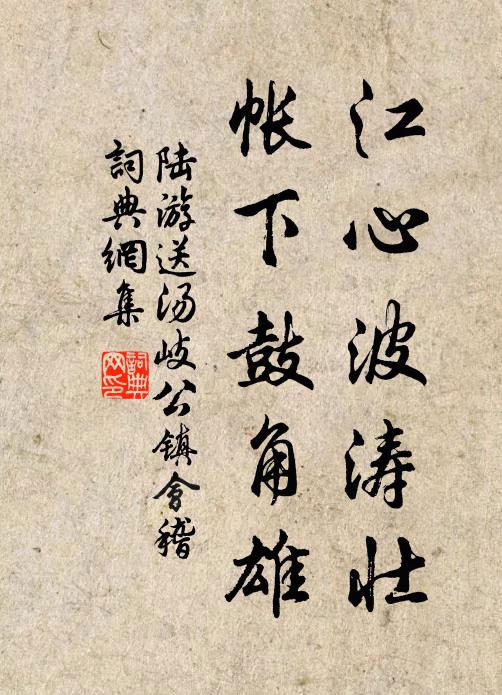 江心波涛壮
帐下鼓角雄
陆游送汤岐公镇会稽
词典網集
詞典網印